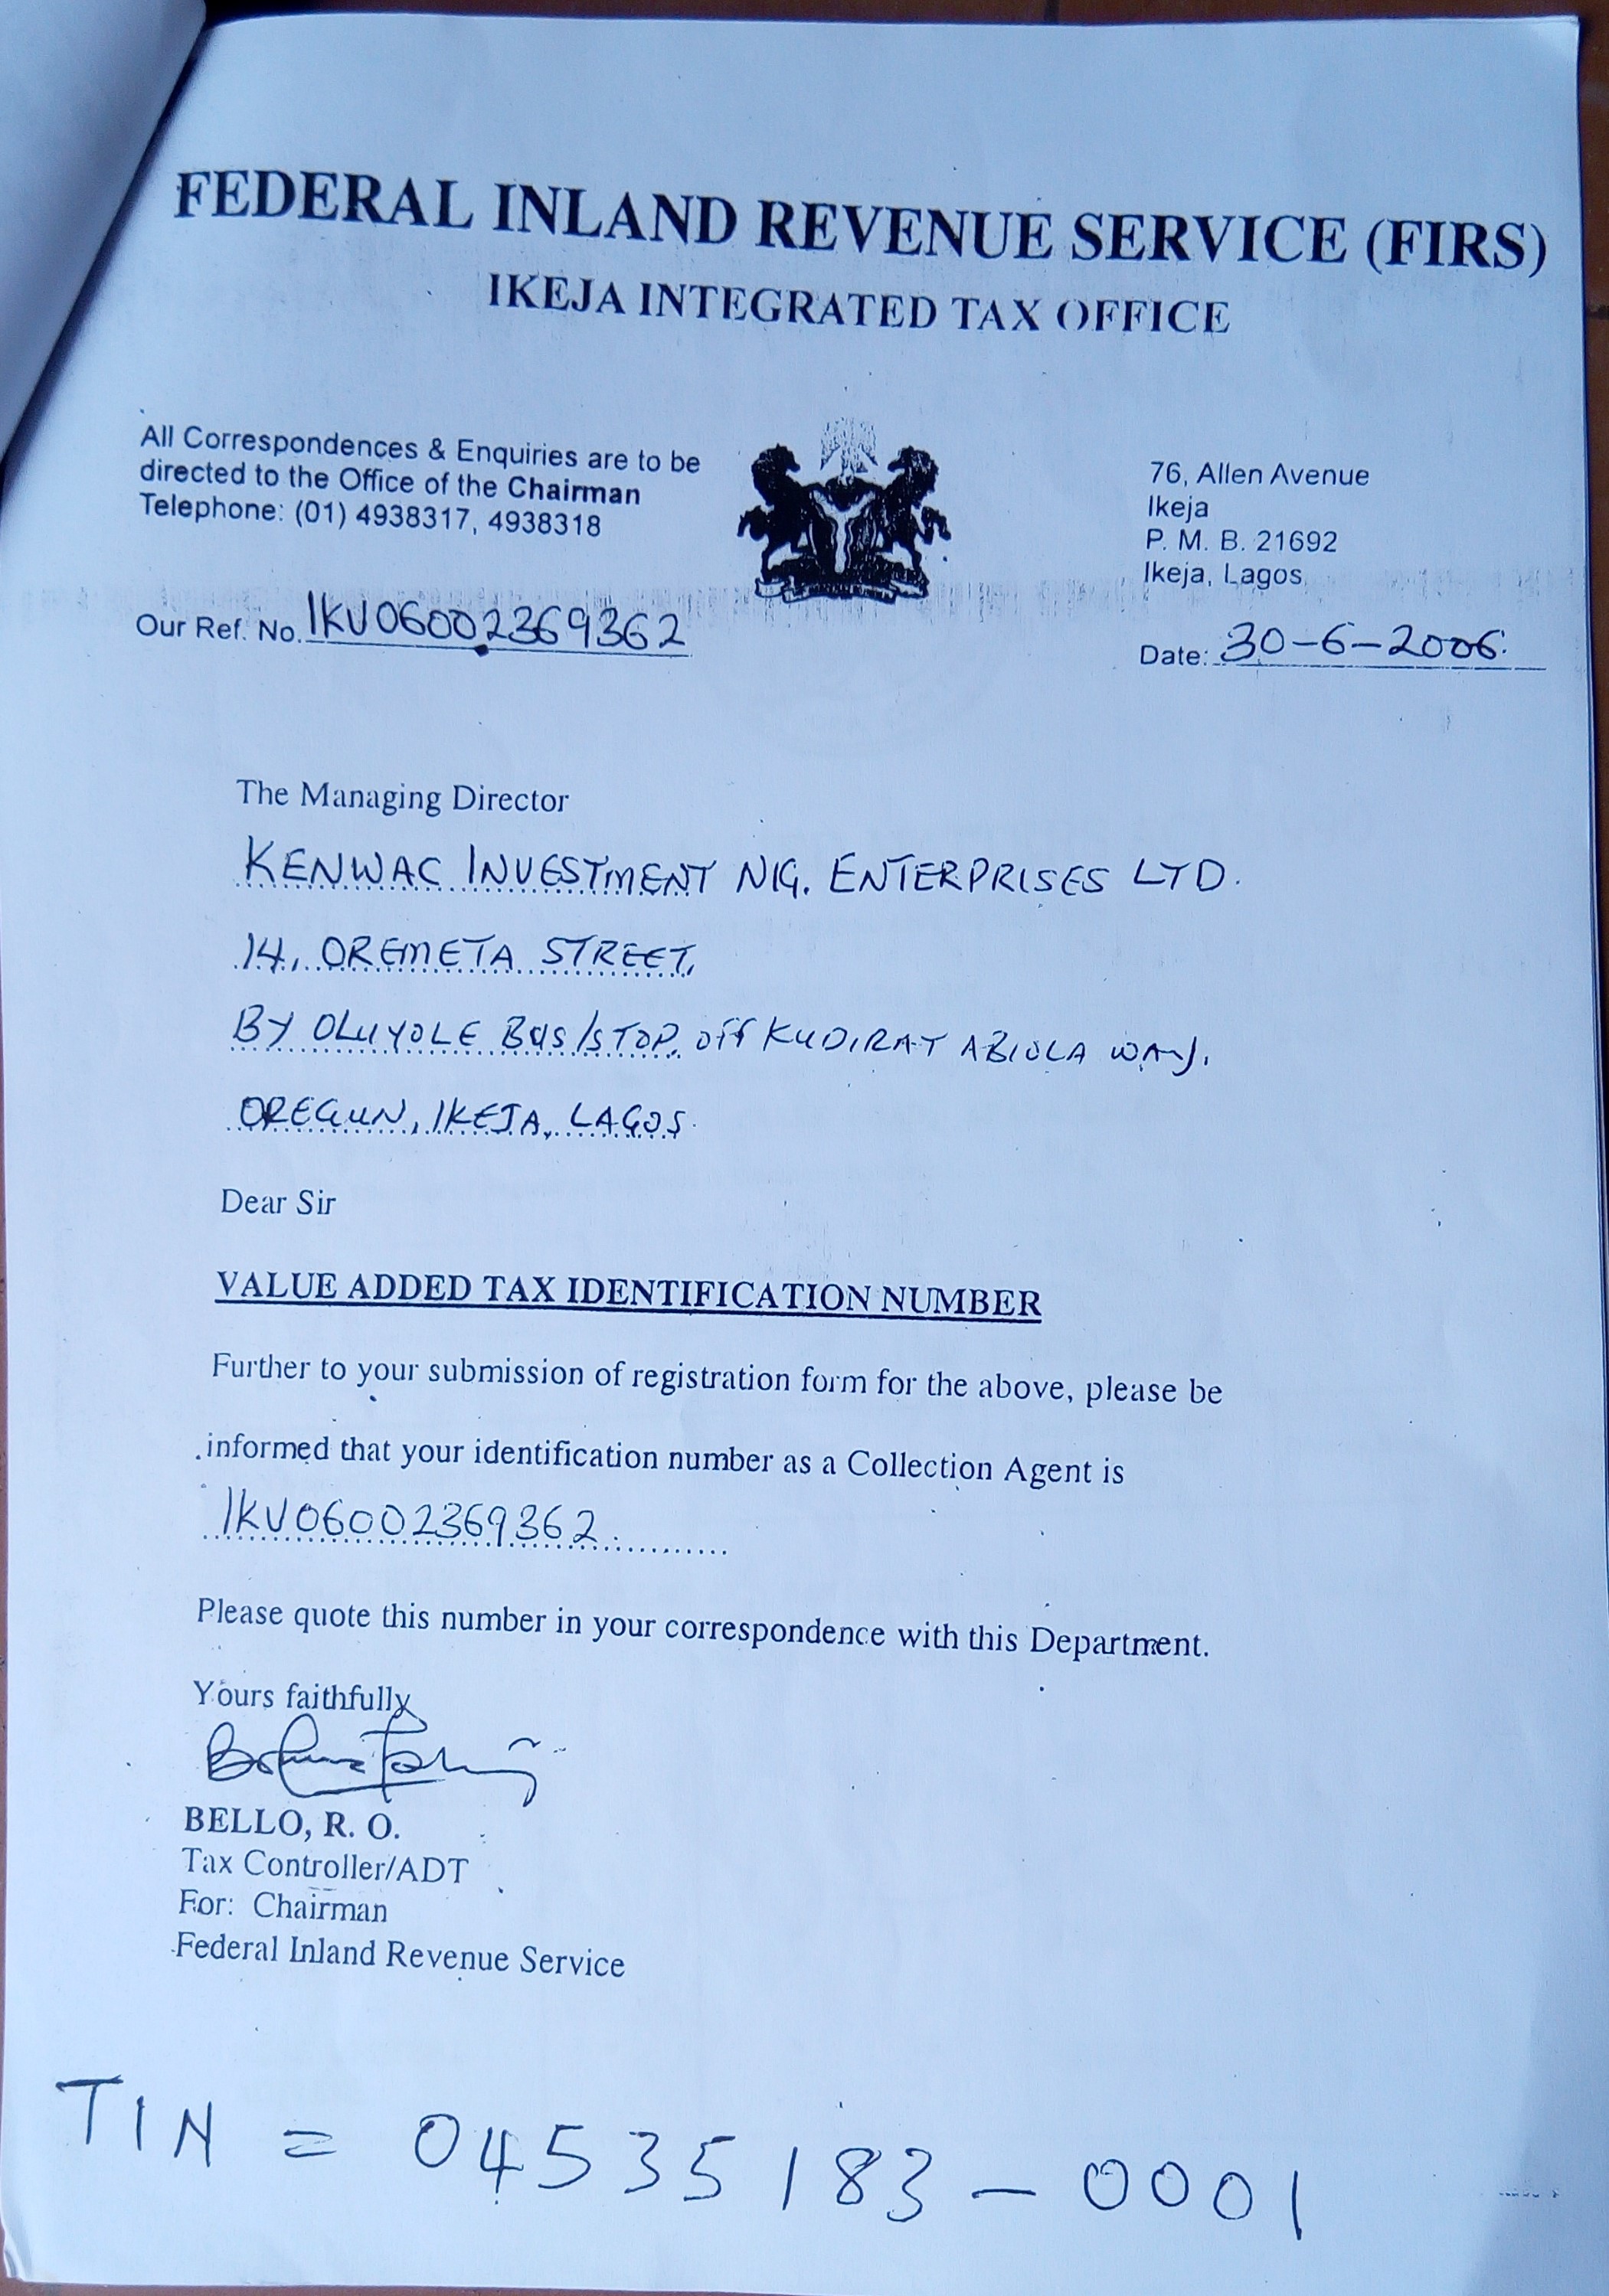 FEDERAL INLAND REVENUE SERVICE (FIRS)
IKEJA INTEGRATED TAX OFFICE
All Correspondences & Enquiries are to be
directed to the Office of the Chairman
Telephone: (01) 4938317, 4938318
76, Allen Avenue
Ikeja
P. M. B. 21692
Ikeja, Lagos
Our Ref. No. IKV06002369362
Date: 30-6-2006.
The Managing Director
KENWAC INVESTMENT NIG. ENTERPRISES LTD.
14, OREMETA STREET,
BY OLUYOLE BUS/STOP. Off KUDIRAT ABIOLA WAY.
OREGUN, IKEJA, LAGOS.
Dear Sir
VALUE ADDED TAX IDENTIFICATION NUMBER
Further to your submission of registration form for the above, please be
informed that your identification number as a Collection Agent is
IKV06002369362
Please quote this number in your correspondence with this Department.
Yours faithfully
BELLO, R. O.
Tax Controller/ADT
For: Chairman
Federal Inland Revenue Service
TIN = 04535183-0001